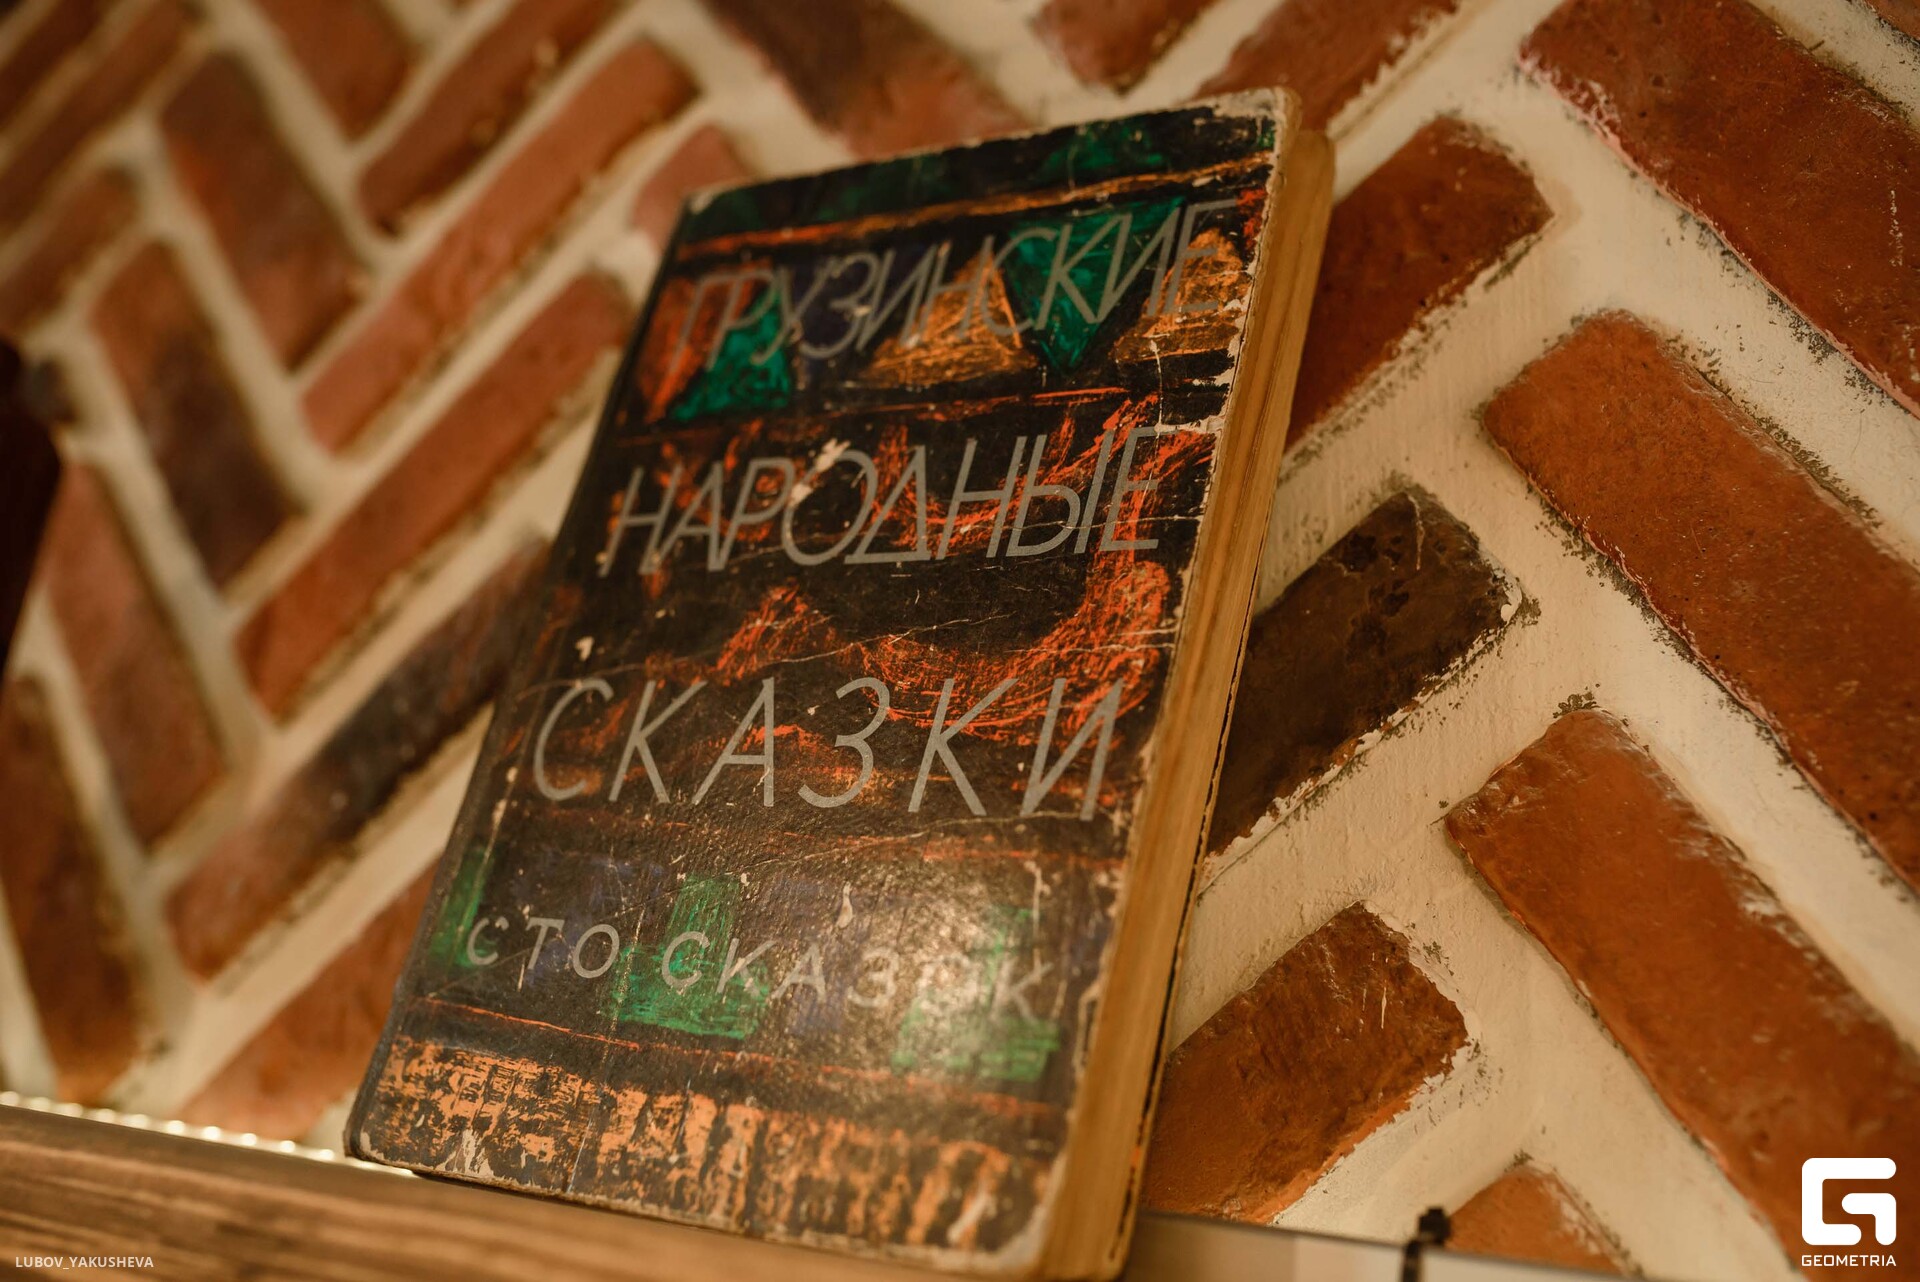 ГРУЗИНСКИЕ
НАРОДНЫЕ
СКАЗКИ
СТО СКАЗОК
LUBOV_YAKUSHEVA
GEOMETRIA